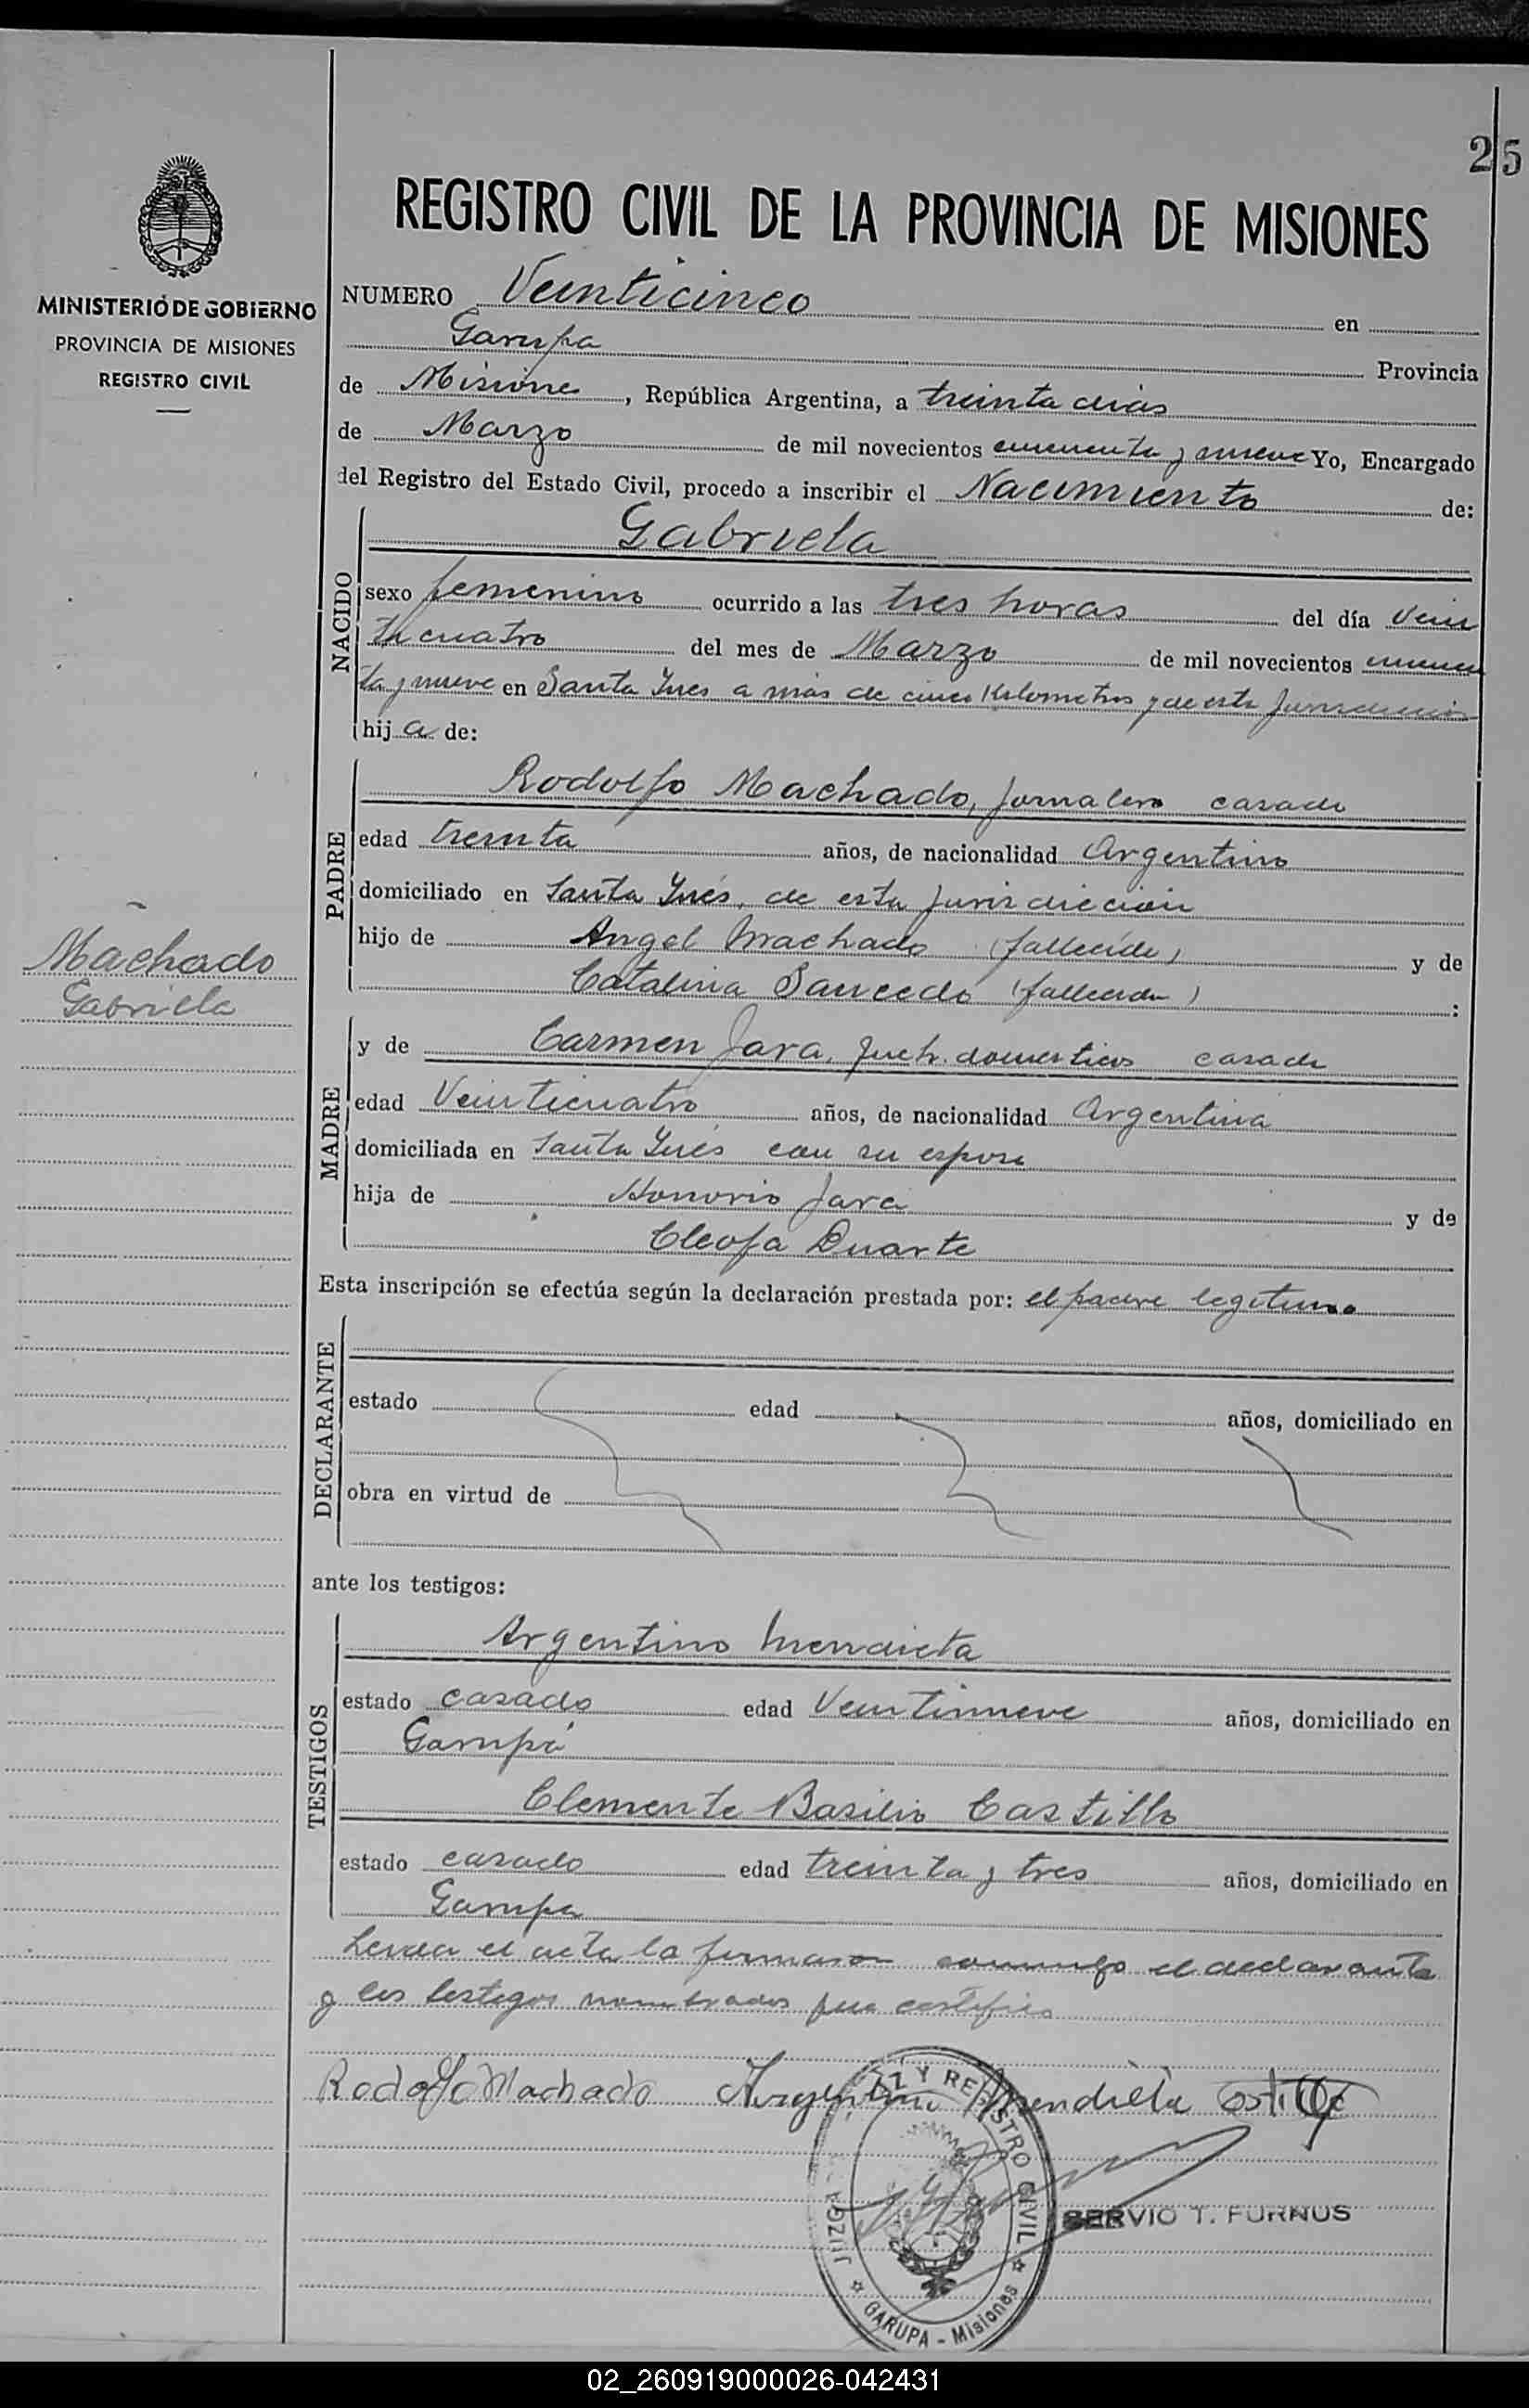 25
REGISTRO CIVIL DE LA PROVINCIA DE MISIONES
MINISTERIO DE GOBIERNO
PROVINCIA DE MISIONES
REGISTRO CIVIL
NUMERO Veinticinco en
Garupa Provincia
de Misiones, República Argentina, a treinta dias
de Marzo de mil novecientos cincuenta y nueve Yo, Encargado
del Registro del Estado Civil, procedo a inscribir el Nacimiento de:
NACIDO
Gabriela
sexo femenino ocurrido a las tres horas del día Vein
ticuatro del mes de Marzo de mil novecientos cincuen
ta y nueve en Santa Ines a mas de cinco Kilometros y de esta Jurisdiccion
hija de:
PADRE
Rodolfo Machado, jornalero casado
edad treinta años, de nacionalidad Argentino
domiciliado en Santa Inés, de esta jurisdiccion
hijo de Angel Machado (fallecido) y de
Catalina Saucedo (fallecida) :
Machado
Gabriela
MADRE
y de Carmen Jara, queh. domesticos casada
edad Veinticuatro años, de nacionalidad Argentina
domiciliada en Santa Inés con su esposo
hija de Honorio Jara y de
Cleofa Duarte
Esta inscripción se efectúa según la declaración prestada por: el padre legitimo
DECLARANTE
estado edad años, domiciliado en
obra en virtud de
ante los testigos:
TESTIGOS
Argentino Mendieta
estado casado edad Veintinueve años, domiciliado en
Garupá
Clemente Basilio Castillo
estado casado edad treinta y tres años, domiciliado en
Garupa
Leida el acta la firmaron conmigo el declarante
y los testigos nombrados que certifico
Rodolfo Machado Argentino Mendieta Castillo
JUZG Z Y REGISTRO CIVIL
GARUPA - Misiones
SERVIO T. FURNUS
02_260919000026-042431